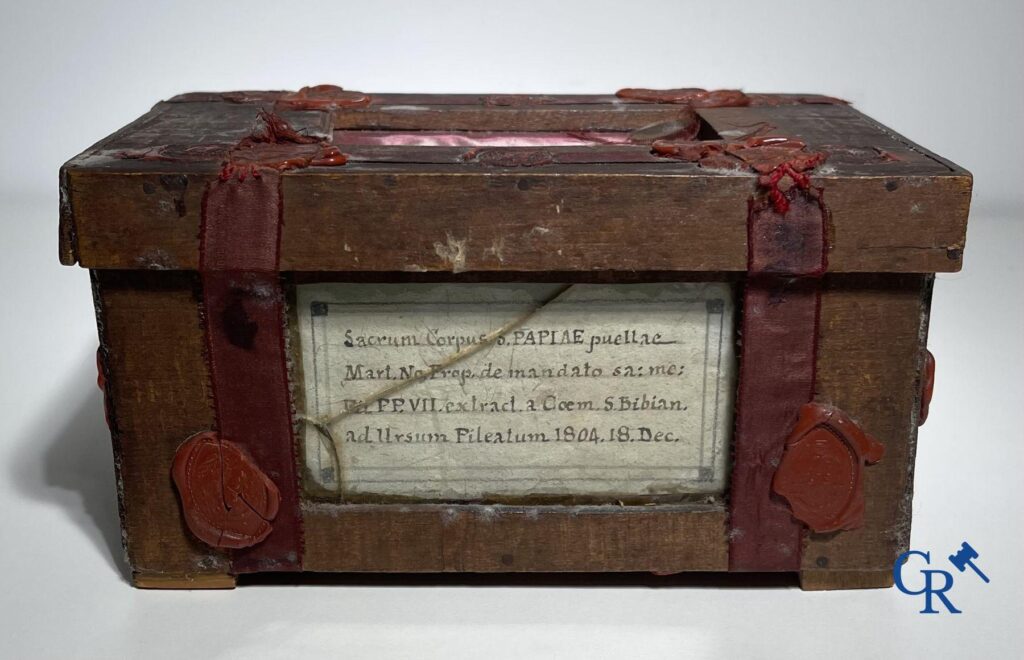 Sacrum Corpus S. PAPIAE puellae
Mart. No. Prop. de mandato sa: me:
Pii PP. VII. extract. a Cœm. S. Bibian.
ad Ursum Pileatum 1804. 18. Dec.
CR